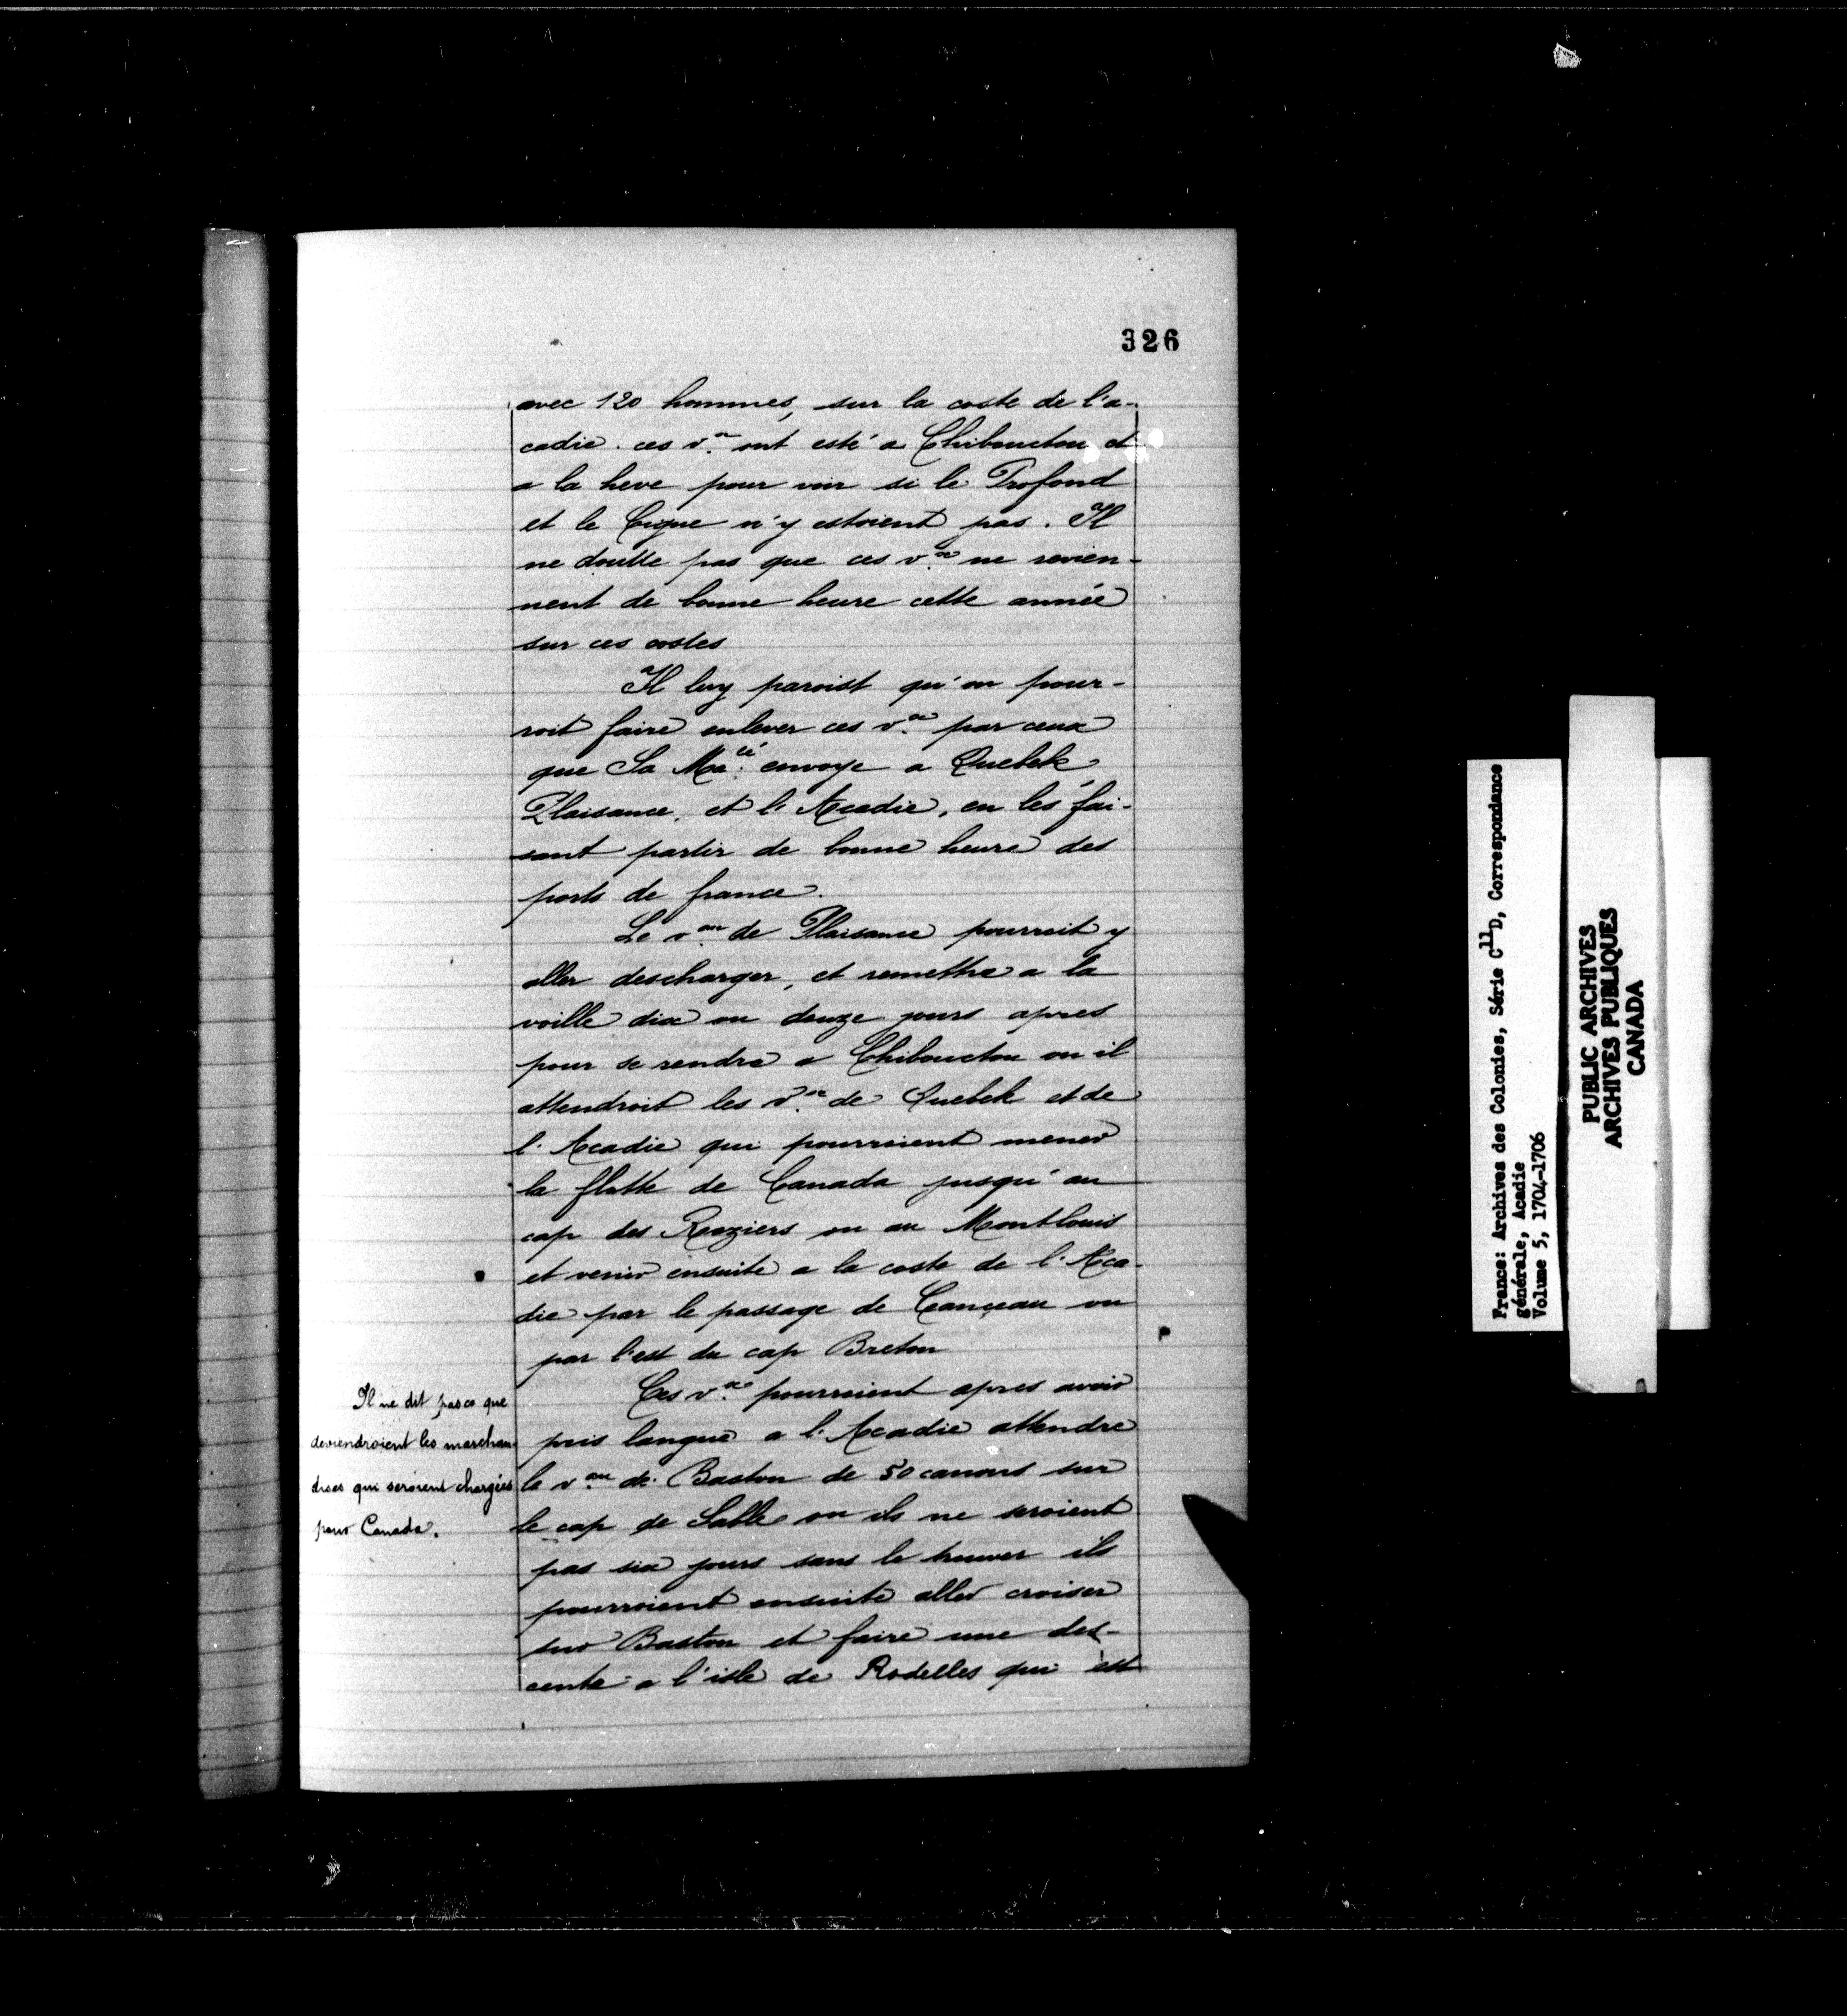 326
avec 120 hommes, sur la coste de l'a-
cadie. ces v.^x ont esté a Chibouctou et
a la heve pour voir si le Profond
et le Cigne n'y estoient pas. Il
ne doutte pas que ces v.^x ne revien-
nent de bonne heure cette année
sur ces costes
Il luy paroist qu'on pour-
roit faire enlever ces v.^x par ceux
que Sa Ma.^té envoye a Quebek
Plaisance, et l'Acadie, en les fai-
sant partir de bonne heure des
ports de france.
Le v.^au de Plaisance pourroit y
aller descharger, et remettre a la
voille dix ou douze jours apres
pour se rendre a Chibouctou ou il
attendroit les v.^x de Quebek et de
l'Acadie qui pourroient mener
la flotte de Canada jusqu'au
cap des Roziers ou au Montlouis
et venir ensuite a la coste de l'Aca-
die par le passage de Canceau ou
par l'est du cap Breton
Ces v.^x pourroient apres avoir
pris langue a l'Acadie attendre
le v.^au de Baston de 50 canons sur
le cap de Sable ou ils ne seroient
pas six jours sans le trouver ils
pourroient ensuite aller croiser
sur Baston et faire une des-
cente a l'isle de Rodelles qui est
Il ne dit pas ce que
deviendroient les marchan-
dises qui seroient chargées
pour Canada.
France: Archives des Colonies, Série C^11 D, Correspondance
générale, Acadie
Volume 5, 1704-1706
PUBLIC ARCHIVES
ARCHIVES PUBLIQUES
CANADA